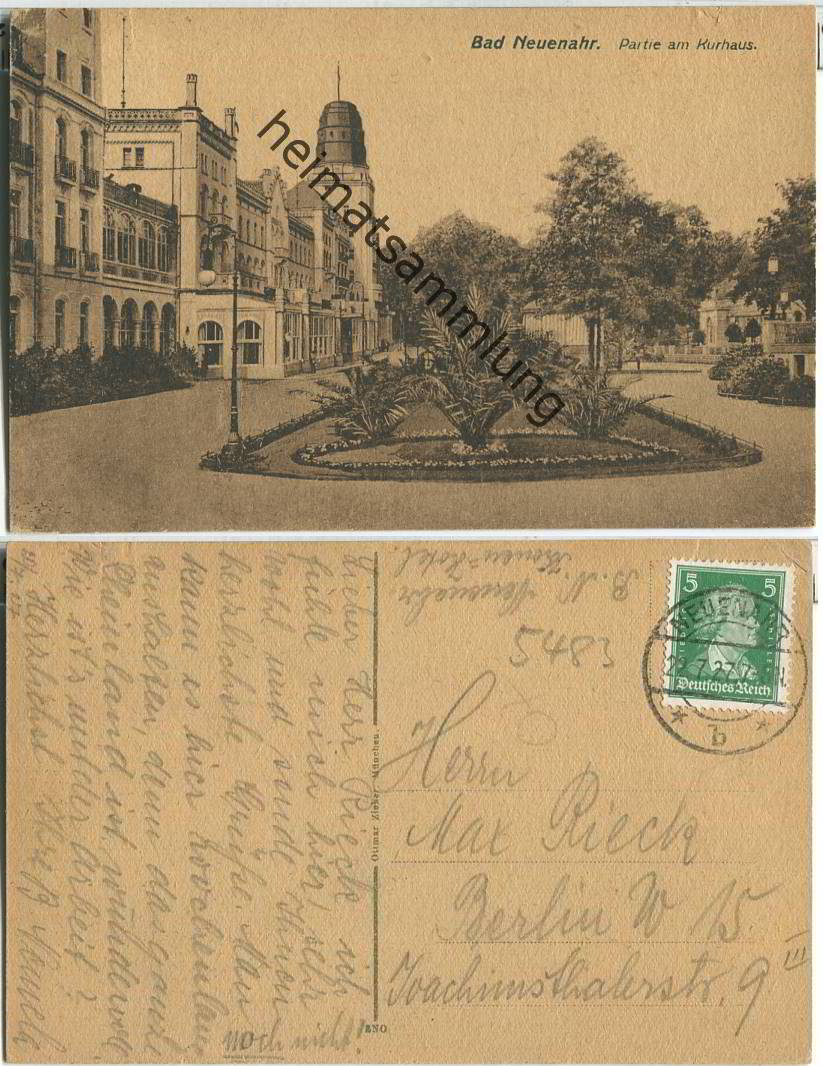 Bad Neuenahr. Partie am Kurhaus.
heimatsammlung
B. N. Neuenahr
Kronen-Hotel.
5483
5 5
Deutsches Reich
NEUENAHR
b
Herrn
Max Rieck
Berlin W 15.
Joachimsthalerstr. 9 III
Ottmar Zieher München
Lieber Herr Rieck ich
fühle mich hier, sehr
wohl und sende Ihnen
herzlichste Grüße. Man
kann es hier wochenlang
aushalten, denn das ganze
Rheinland ist wundervoll
Wie ist's mit der Arbeit?
Herzlichst Ihre
noch nicht!